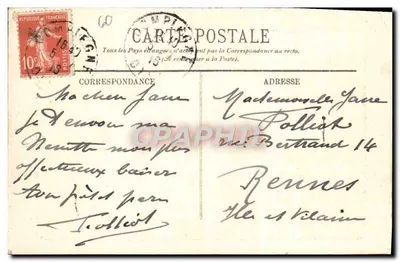 60
RÉPUBLIQUE FRANÇAISE
10c
COMPIEGNE
CARTE POSTALE
Tous les Pays étrangers n'acceptent pas la Correspondance au recto.
(Se renseigner à la Poste).
CORRESPONDANCE
ADRESSE
Ma chère Jane
Je t'envoie ma
mon plus
affectueux baiser
Ton
Folliot
Mademoiselle Jane
Folliot
rue Bertrand 14
Rennes
Ille et Vilaine
CPAPHIL